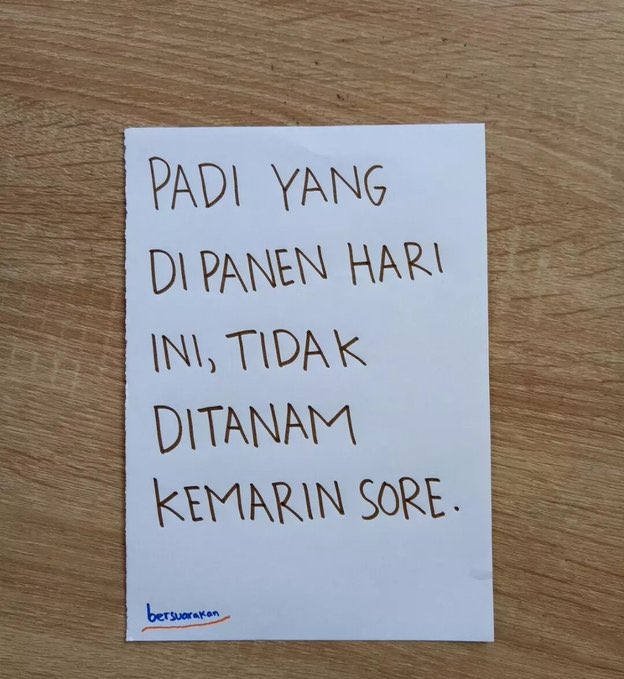 PADI YANG
DIPANEN HARI
INI, TIDAK
DITANAM
KEMARIN SORE.
bersuarakan